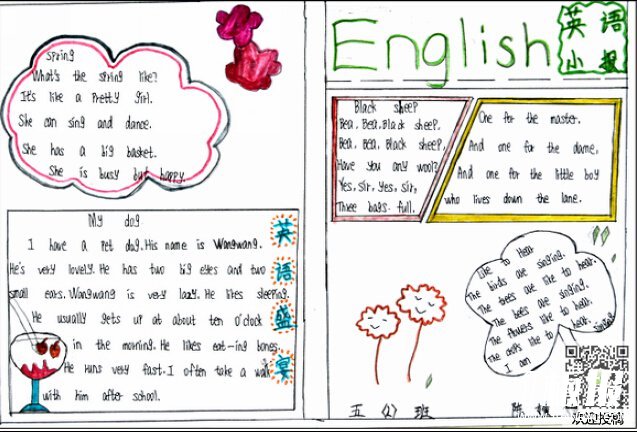 spring
What's the spring like?
It's like a Pretty girl.
She can sing and dance.
She has a big basket.
She is busy but happy.
My dog
I have a Pet dog. His name is Wangwang.
He's very lovely. He has two big eyes and two
small ears. Wangwang is very lazy. He likes sleeping.
He usually gets up at about ten o'clock
in the morning. He likes eat-ing bones.
He runs very fast. I often take a walk
with him after school.
英
语
盛
宴
English
英语
小报
Black sheep
Bea, Bea, Black sheep,
Bea, Bea, Black sheep,
Have you any wool?
Yes, Sir, yes, sir,
Three bags full.
One for the master.
And one for the dame,
And one for the little boy
who lives down the lane.
Like to Hear
The birds are singing.
The trees are like to hear.
The bees are singing.
The flowers like to hear.
The are like to hear.
I am
五 (2) 班
陈